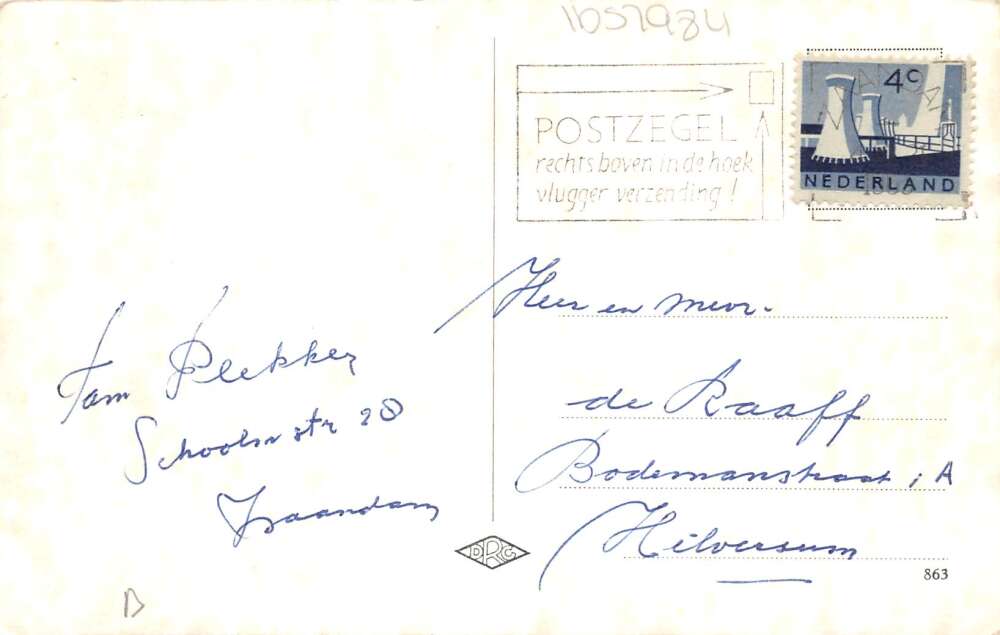 1657984
4c
NEDERLAND
POSTZEGEL
rechts boven in de hoek
vlugger verzending!
Fam Plekker
Schoolm str 28
Zaandam
Heer en mevr.
de Raaff
Bodemanstraat 1 A
Hilversum
DRC
863
B